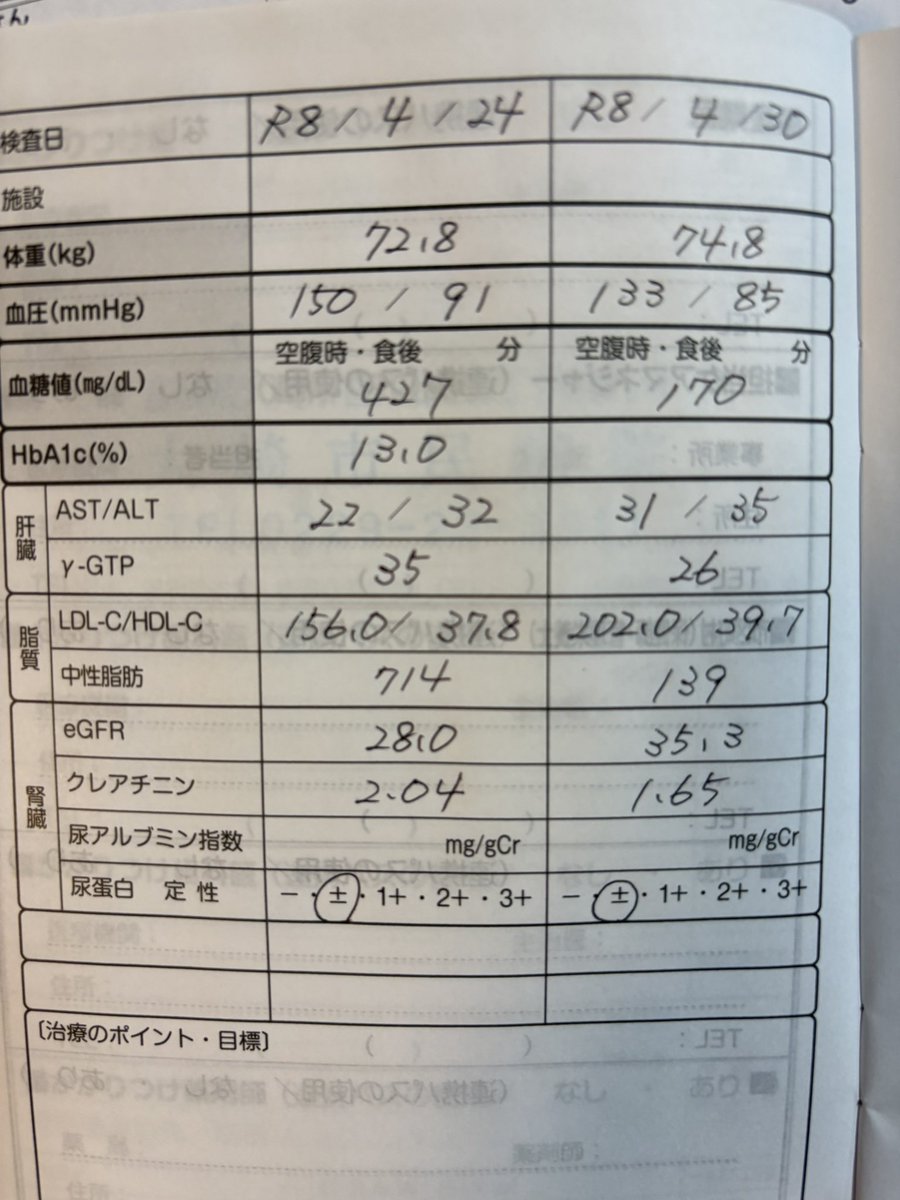 検査日 R8 / 4 / 24 R8 / 4 / 30
施設
体重(kg) 72.8 74.8
血圧(mmHg) 150 / 91 133 / 85
空腹時・食後 分 空腹時・食後 分
血糖値(mg/dL) 427 170
HbA1c(%) 13.0
肝臓
AST/ALT 22 / 32 31 / 35
γ-GTP 35 26
脂質
LDL-C/HDL-C 156.0/ 37.8 202.0/ 39.7
中性脂肪 714 139
腎臓
eGFR 28.0 35.3
クレアチニン 2.04 1.65
尿アルブミン指数 mg/gCr mg/gCr
尿蛋白 定性 −・±・1+・2+・3+ −・±・1+・2+・3+
〔治療のポイント・目標〕